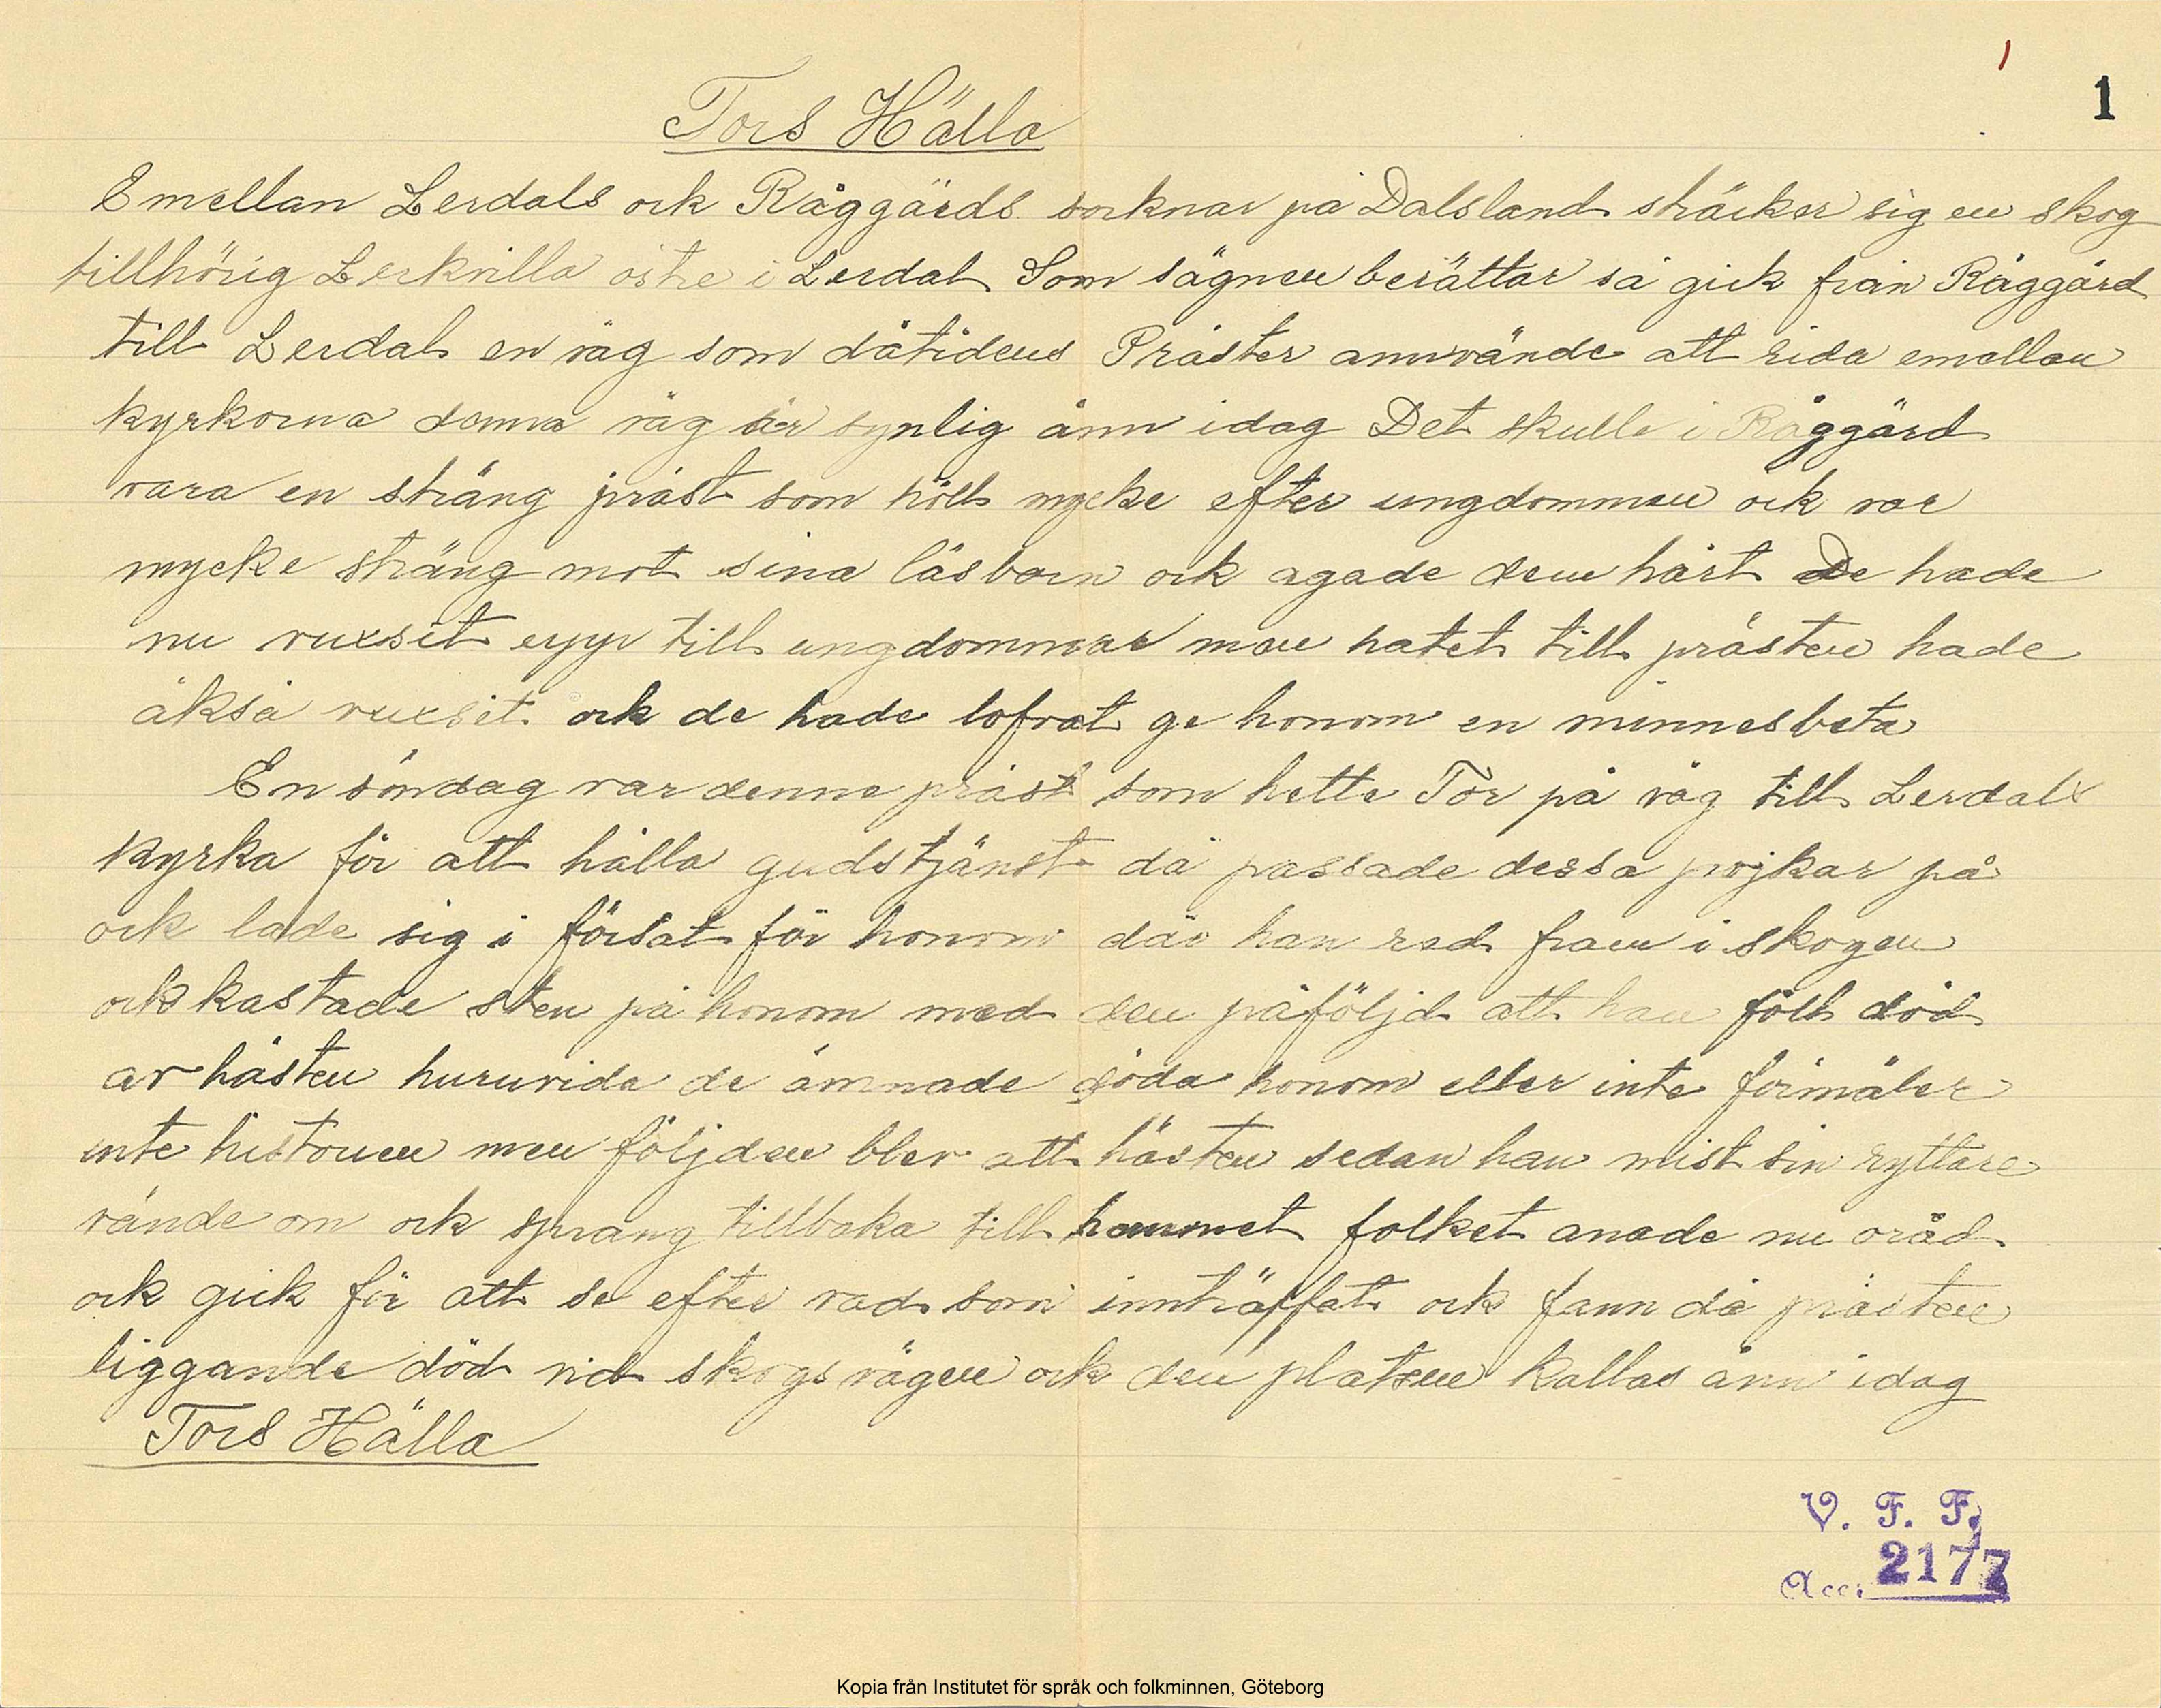 1
Tors Hälla
Emellan Lerdals ock Råggärds socknar på Dalsland sträcker sig en skog
tillhörig Lerkvilla östre i Lerdal Som sägnen berättar så gick från Råggärd
till Lerdal en väg som dåtidens Präster annvände att rida emellan
kyrkorna denna väg är synlig änn idag Det skulle i Råggärd
vara en sträng präst som höll mycke efter ungdommen ock var
mycke sträng mot sina läsbarn ock agade dem hårt De hade
nu vuxsit upp till ungdommar men hatet till prästen hade
åkså vuxsit. ock de hade lofvat ge honom en minnesbeta
En söndag var denne präst som hette Tor på väg till Lerdals
kyrka för att hålla gudstjänst då passade dessa pojkar på
ock lade sig i försåt för honom där han red fram i skogen
ock kastade sten på honom med den påföljd att han föll död
av hästen huruvida de ämnade döda honom eller inte förmäler
inte historien men följden blev att hästen sedan han mist sin ryttare
vände om ock sprang tillbaka till hemmet folket anade nu oråd
ock gick för att se efter vad som innträffat ock fann då prästen
liggande död vid skogsvägen ock den platsen kallas änn idag
Tors Hälla
V. F. F.
Acc. 2177
Kopia från Institutet för språk och folkminnen, Göteborg